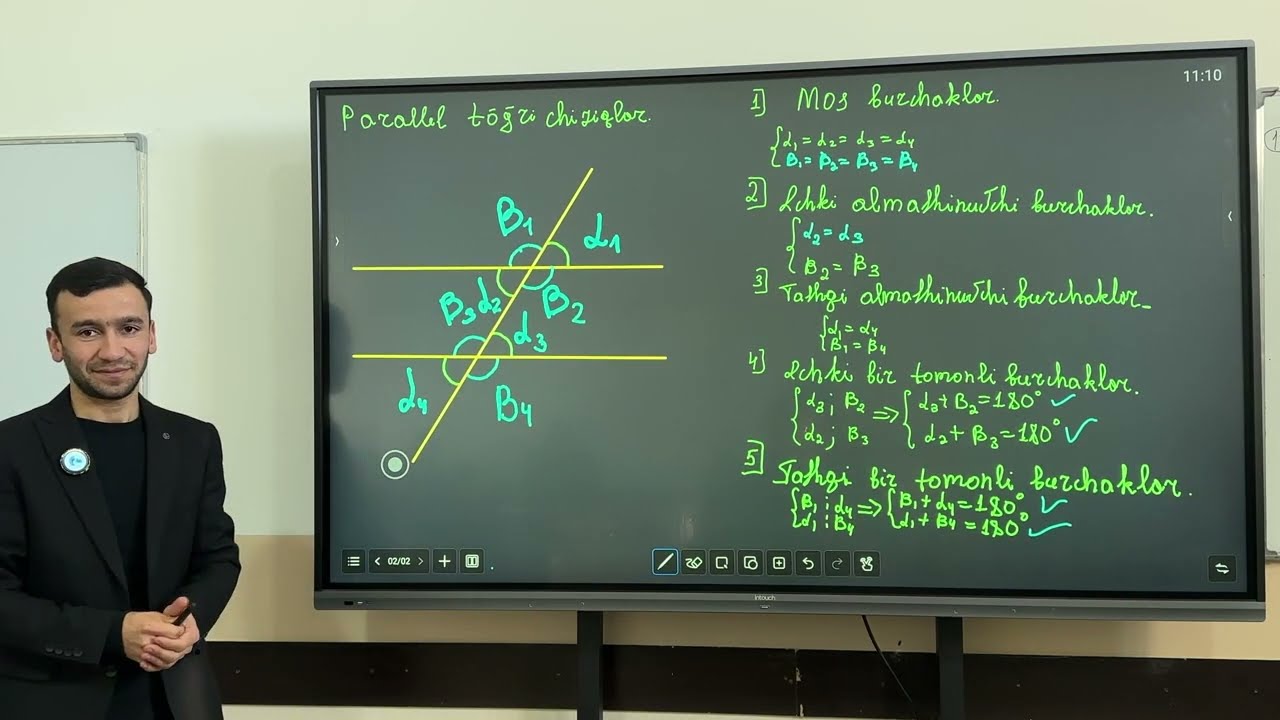 11:10
Parallel tōğri chiziqlar.
β₁
α₁
β₃ α₂ β₂
α₃
α₄ β₄
1] Mos burchaklar.
{α₁ = α₂ = α₃ = α₄
β₁ = β₂ = β₃ = β₄
2] Ichki almashinuvchi burchaklar.
{α₂ = α₃
β₂ = β₃
3] Tashqi almashinuvchi burchaklar
{α₁ = α₄
β₁ = β₄
4] Ichki bir tomonli burchaklar.
{α₃ ; β₂ ⇒ {α₃ + β₂ = 180° ✓
α₂ ; β₃ α₂ + β₃ = 180° ✓
5] Tashqi bir tomonli burchaklar.
{β₁ ; α₄ ⇒ {β₁ + α₄ = 180° ✓
α₁ ; β₄ α₁ + β₄ = 180° ✓
02/02
intouch